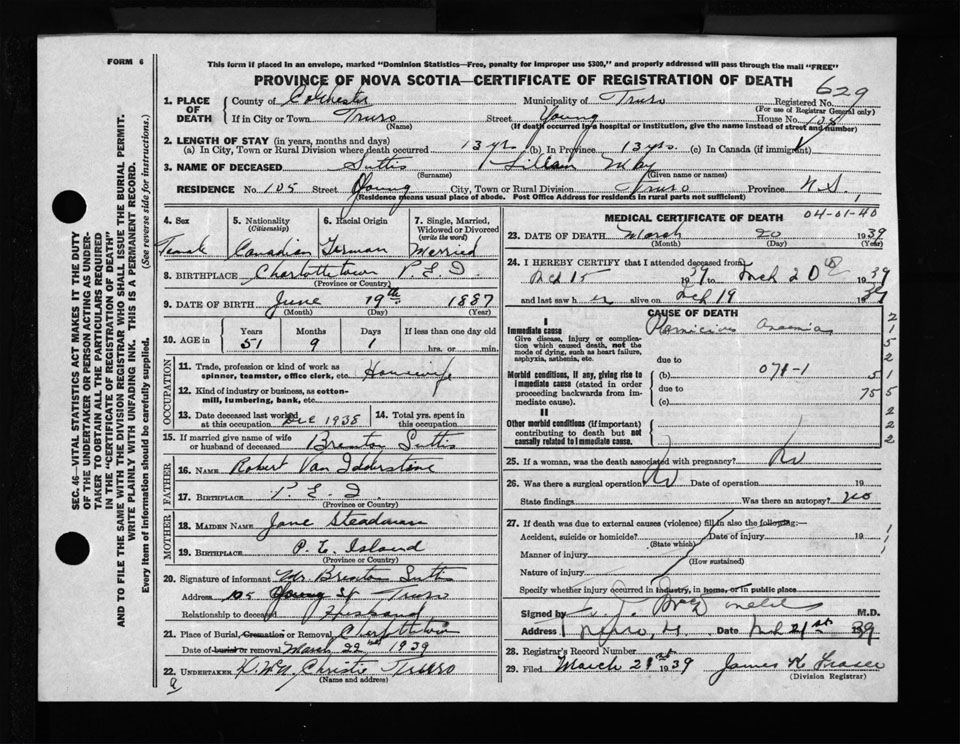 FORM 6
This form if placed in an envelope, marked "Dominion Statistics—Free, penalty for improper use $300," and properly addressed will pass through the mail "FREE"
PROVINCE OF NOVA SCOTIA—CERTIFICATE OF REGISTRATION OF DEATH
629
1. PLACE OF DEATH County of Colchester Municipality of Truro Registered No.
(For use of Registrar General only)
If in City or Town Truro Street Young House No. 105
(Name) (If death occurred in a hospital or institution, give the name instead of street and number)
2. LENGTH OF STAY (in years, months and days)
(a) In City, Town or Rural Division where death occurred 13 yrs (b) In Province 13 yrs. (c) In Canada (if immigrant)
3. NAME OF DECEASED Suttis Lillian May
(Surname) (Given name or names)
RESIDENCE No. 105 Street Young City, Town or Rural Division Truro Province N.S.
(Residence means usual place of abode. Post Office Address for residents in rural parts not sufficient)
4. Sex Female
5. Nationality (Citizenship) Canadian
6. Racial Origin German
7. Single, Married, Widowed or Divorced (write the word) Married
8. BIRTHPLACE Charlottetown P.E.I.
(Province or Country)
9. DATE OF BIRTH June 19th 1887
(Month) (Day) (Year)
10. AGE in Years Months Days If less than one day old
51 9 1 hrs. or min.
OCCUPATION
11. Trade, profession or kind of work as spinner, teamster, office clerk, etc. Housewife
12. Kind of industry or business, as cotton-mill, lumbering, bank, etc.
13. Date deceased last worked at this occupation Dec 1938
14. Total yrs. spent in this occupation
15. If married give name of wife or husband of deceased Brenton Suttis
FATHER
16. NAME Robert Van Idderstine
17. BIRTHPLACE P.E.I.
(Province or Country)
MOTHER
18. MAIDEN NAME Jane Steadman
19. BIRTHPLACE P.E. Island
(Province or Country)
20. Signature of informant Mr Brenton Suttis
Address 105 Young St Truro
Relationship to deceased Husband
21. Place of Burial, Cremation or Removal Charlottetown
Date of burial or removal March 22nd 1939
22. UNDERTAKER Christie Truro
(Name and address)
MEDICAL CERTIFICATE OF DEATH 04-01-40
23. DATE OF DEATH March 20 1939
(Month) (Day) (Year)
24. I HEREBY CERTIFY that I attended deceased from
Mch 15 1939 to Mch 20 1939
and last saw h er alive on Mch 19 1939
CAUSE OF DEATH
I
Immediate cause Pernicious Anaemia
Give disease, injury or complication which caused death, not the mode of dying, such as heart failure, asphyxia, asthenia, etc.
due to
Morbid conditions, if any, giving rise to immediate cause (stated in order proceeding backwards from immediate cause).
(b)
due to
(c)
II
Other morbid conditions (if important) contributing to death but not causally related to immediate cause.
25. If a woman, was the death associated with pregnancy? No
26. Was there a surgical operation? No Date of operation 19
State findings Was there an autopsy? no
27. If death was due to external causes (violence) fill in also the following:—
Accident, suicide or homicide? Date of injury 19
(State which)
Manner of injury
(How sustained)
Nature of injury
Specify whether injury occurred in industry, in home, or in public place
Signed by M.D.
Address Truro, N.S. Date Mch 21st 39
28. Registrar's Record Number
29. Filed March 21st 1939 James K Fraser
(Division Registrar)
SEC. 46—VITAL STATISTICS ACT MAKES IT THE DUTY
OF THE UNDERTAKER OR PERSON ACTING AS UNDERTAKER TO OBTAIN ALL THE PARTICULARS REQUIRED
IN THE "CERTIFICATE OF REGISTRATION OF DEATH"
AND TO FILE THE SAME WITH THE DIVISION REGISTRAR WHO SHALL ISSUE THE BURIAL PERMIT.
WRITE PLAINLY WITH UNFADING INK. THIS IS A PERMANENT RECORD.
Every item of information should be carefully supplied. (See reverse side for instructions.)